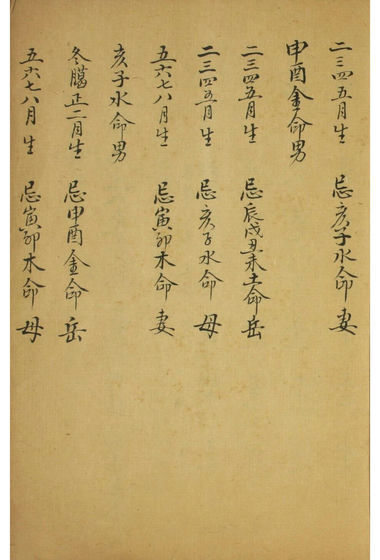 二三四五月生 忌亥子水命妻
申酉金命男
二三四五月生 忌辰戌丑未土命岳
二三四五月生 忌亥子水命母
五六七八月生 忌寅卯木命妻
亥子水命男
冬臘正二月生 忌申酉金命岳
五六七八月生 忌寅卯木命母